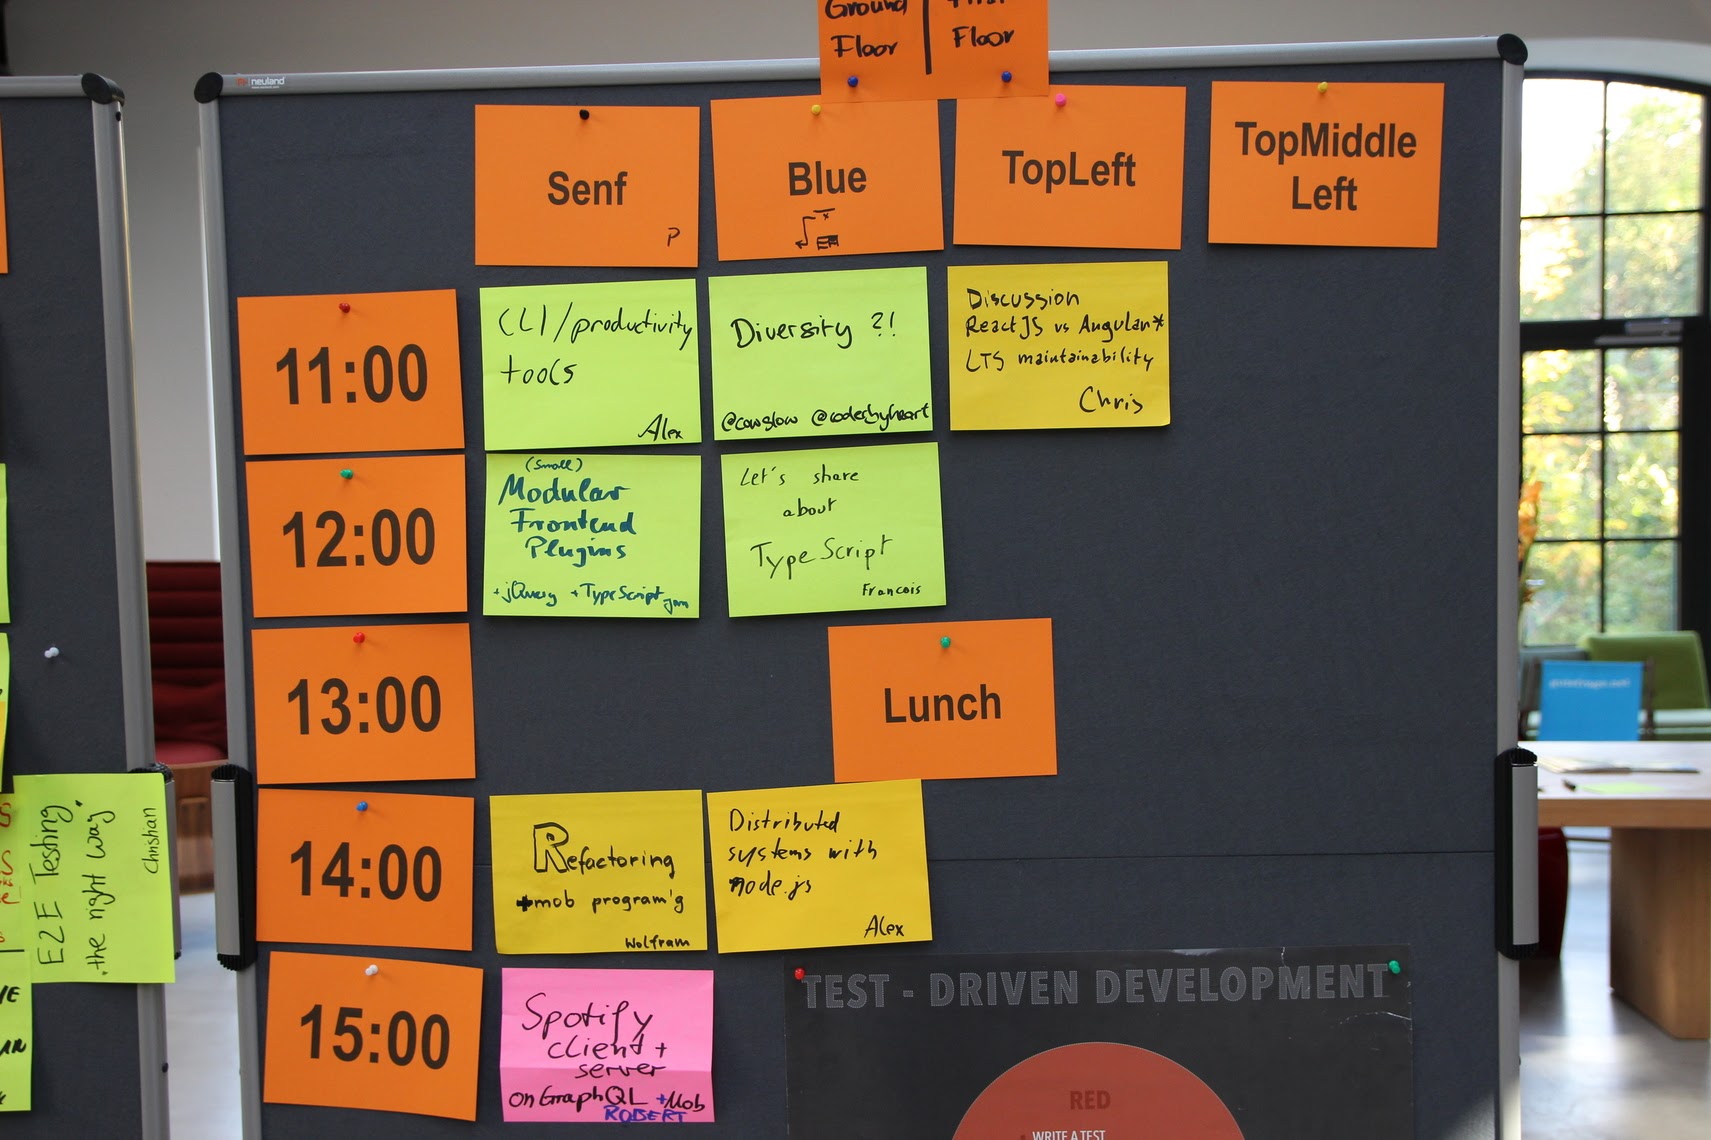 Ground
Floor
First
Floor
neuland
Senf
P
Blue
TopLeft
TopMiddle
Left
11:00
CLI/productivity
tools
Alex
Diversity ?!
@cowglow @codesbyheart
Discussion
ReactJS vs Angular*
LTS maintainability
Chris
12:00
(small)
Modular
Frontend
Plugins
+jQuery +TypeScript
Jan
Let's share
about
TypeScript
Francois
13:00
Lunch
14:00
Refactoring
+mob program'g
Wolfram
Distributed
systems with
node.js
Alex
15:00
Spotify
client +
server
on GraphQL +Mob
ROBERT
E2E Testing
the right way.
Christian
TEST - DRIVEN DEVELOPMENT
RED
WRITE A TEST